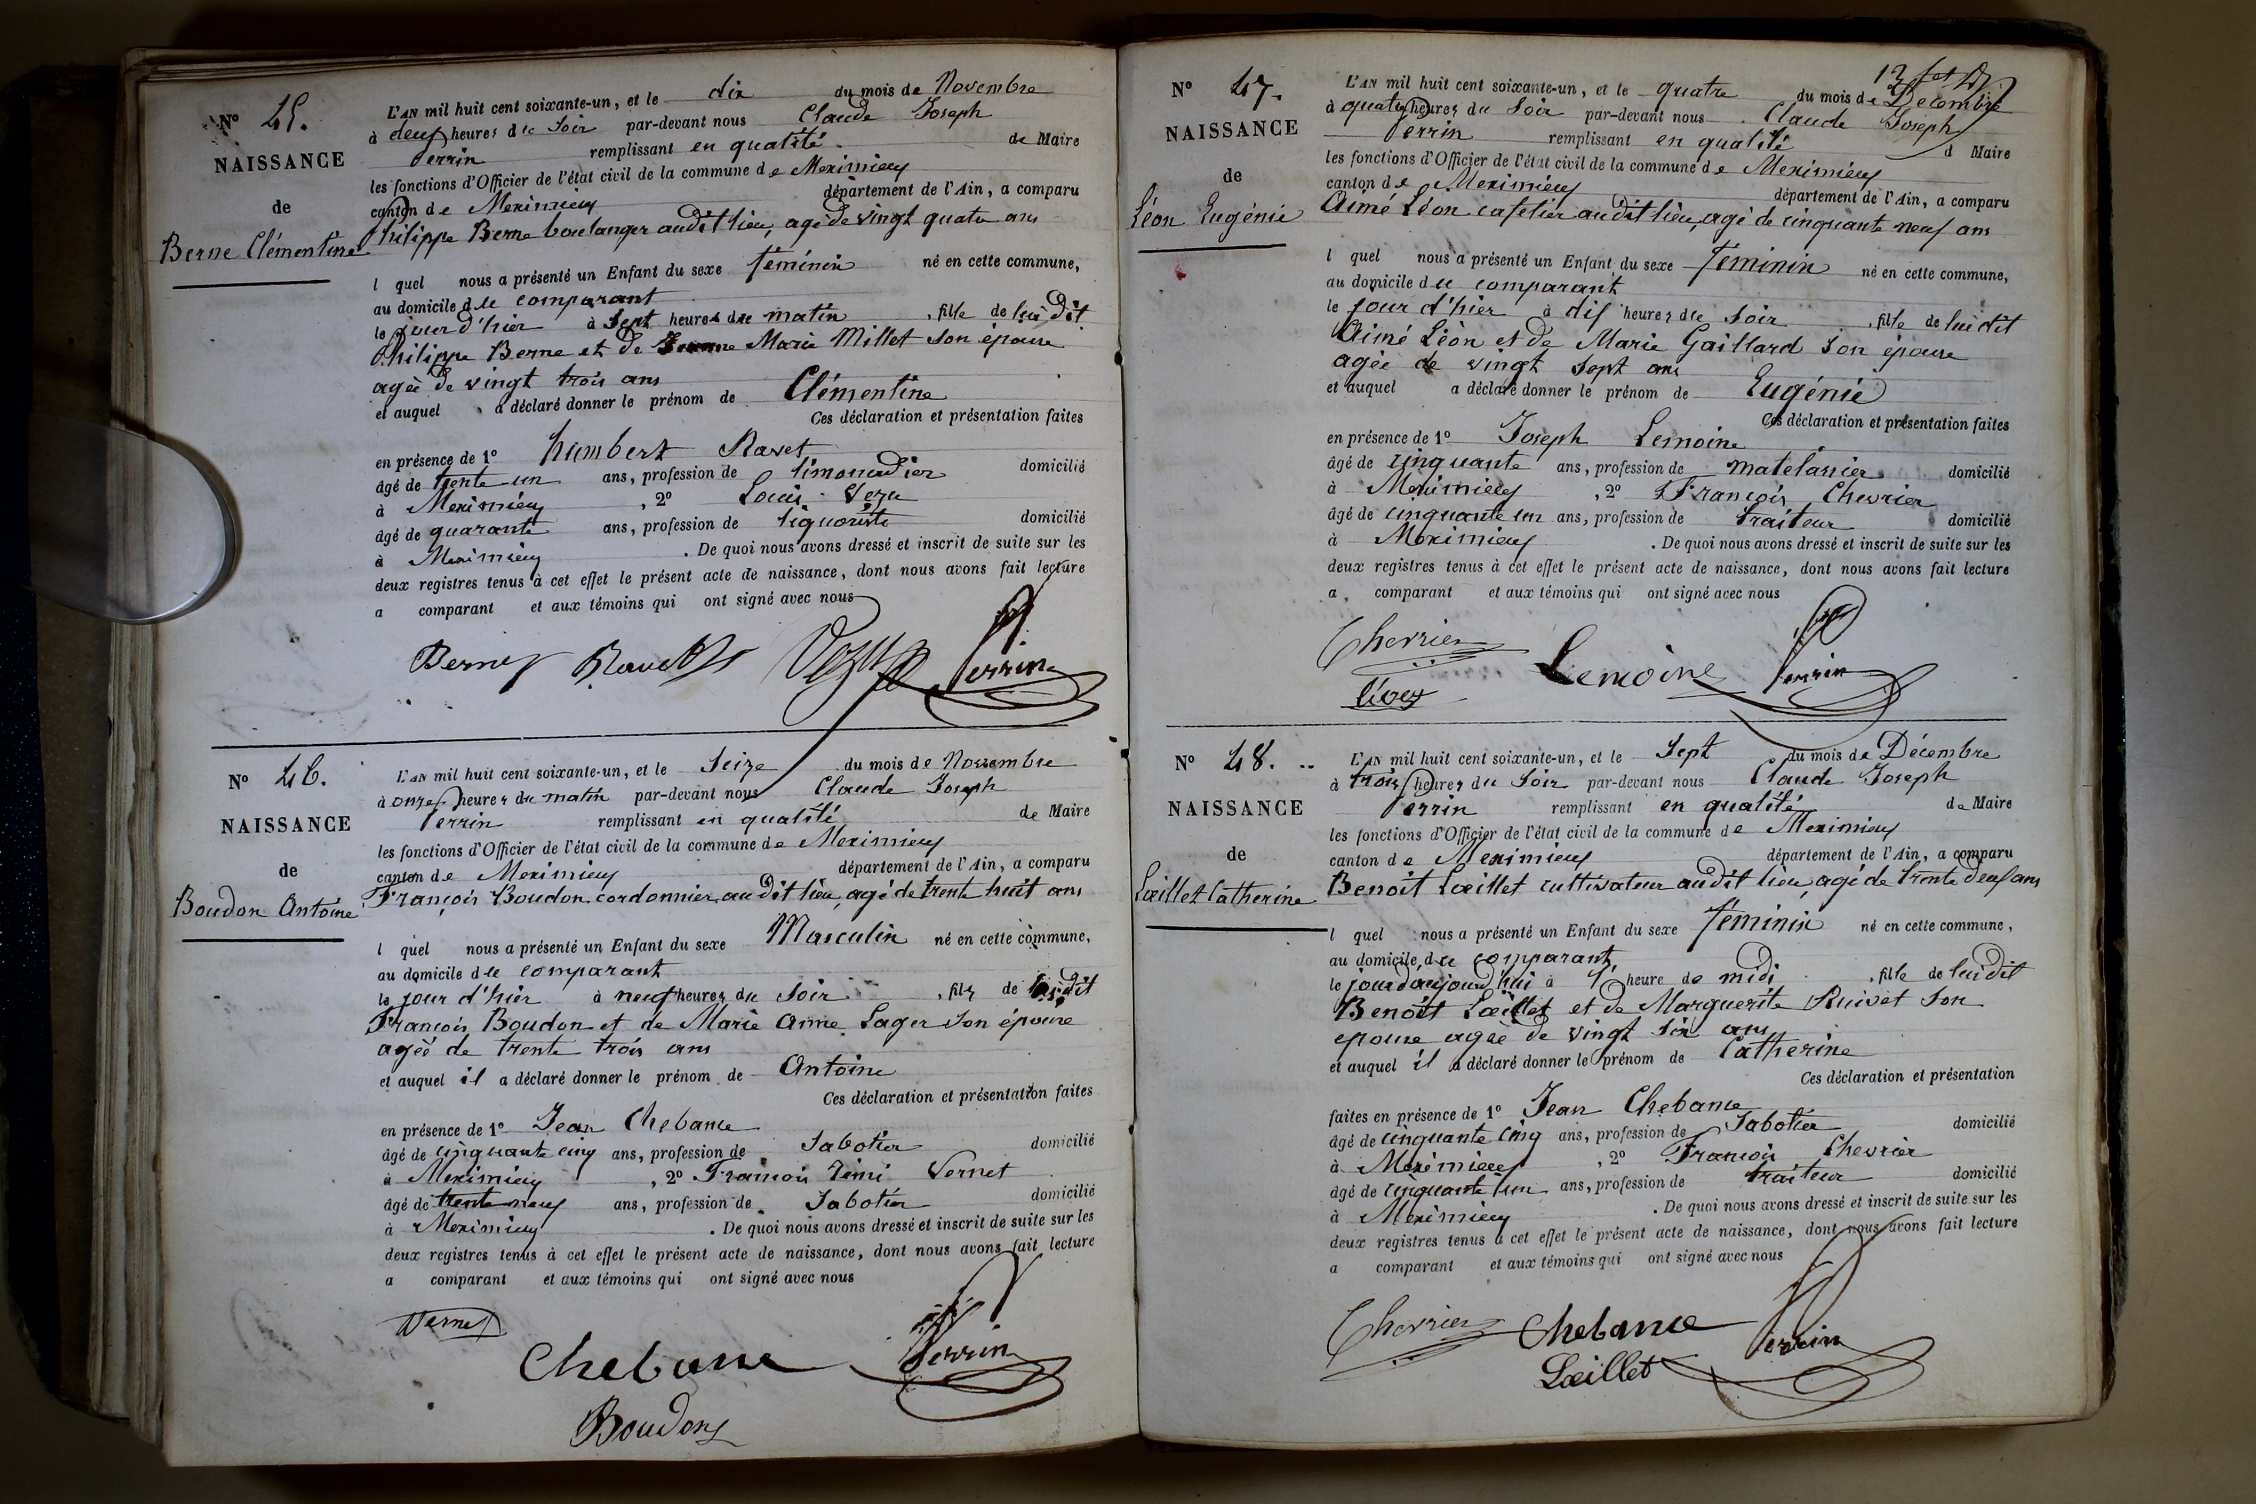 N° 45.
NAISSANCE
de
Berne Clémentine
L'AN mil huit cent soixante-un, et le dix du mois de Novembre
à deux heures du Soir par-devant nous Claude Joseph
Perrin remplissant en qualité de Maire
les fonctions d'Officier de l'état civil de la commune de Meximieux
canton de Meximieux département de l'Ain, a comparu
Philippe Berne boulanger audit lieu, agé de vingt quatre ans
l quel nous a présenté un Enfant du sexe féminin né en cette commune,
au domicile du comparant
le jour d'hier à Sept heures du matin , fille de lui dit
Philippe Berne et de Jeanne Marie Millet son épouse
agée de vingt trois ans
et auquel a déclaré donner le prénom de Clémentine
Ces déclaration et présentation faites
en présence de 1° humbert Ravet
âgé de trente un ans, profession de limonadier domicilié
à Meximieux , 2° Louis Vezu
âgé de quarante ans, profession de liquoriste domicilié
à Meximieux . De quoi nous avons dressé et inscrit de suite sur les
deux registres tenus à cet effet le présent acte de naissance, dont nous avons fait lecture
a comparant et aux témoins qui ont signé avec nous
Berne Ravet Vezu Perrin
N° 46.
NAISSANCE
de
Boudon Antoine
L'AN mil huit cent soixante-un, et le Seize du mois de Novembre
à onze heures du matin par-devant nous Claude Joseph
Perrin remplissant en qualité de Maire
les fonctions d'Officier de l'état civil de la commune de Meximieux
canton de Meximieux département de l'Ain, a comparu
François Boudon cordonnier audit lieu, agé de trente huit ans
l quel nous a présenté un Enfant du sexe Masculin né en cette commune,
au domicile du comparant
le jour d'hier à neuf heures du Soir , fils de lui dit
François Boudon et de Marie Anne Lager son épouse
agée de trente trois ans
et auquel il a déclaré donner le prénom de Antoine
Ces déclaration et présentation faites
en présence de 1° Jean Chebance
âgé de cinquante cinq ans, profession de Sabotier domicilié
à Meximieux , 2° François Rémi Vernet
âgé de trente neuf ans, profession de Sabotier domicilié
à Meximieux . De quoi nous avons dressé et inscrit de suite sur les
deux registres tenus à cet effet le présent acte de naissance, dont nous avons fait lecture
a comparant et aux témoins qui ont signé avec nous
Vernet
Chebance Perrin
Boudon
N° 47.
NAISSANCE
de
Léon Eugénie
L'AN mil huit cent soixante-un, et le quatre du mois de Décembre
à quatre heures du Soir par-devant nous Claude Joseph
Perrin remplissant en qualité d Maire
les fonctions d'Officier de l'état civil de la commune de Meximieux
canton de Meximieux département de l'Ain, a comparu
Aimé Léon cafetier audit lieu, agé de cinquante neuf ans
l quel nous a présenté un Enfant du sexe féminin né en cette commune,
au domicile du comparant
le jour d'hier à dix heures du Soir , fille de lui dit
Aimé Léon et de Marie Gaillard son épouse
agée de vingt sept ans
et auquel a déclaré donner le prénom de Eugénie
Ces déclaration et présentation faites
en présence de 1° Joseph Lemoine
âgé de cinquante ans, profession de matelassier domicilié
à Meximieux , 2° François Chevrier
âgé de cinquante un ans, profession de traiteur domicilié
à Meximieux . De quoi nous avons dressé et inscrit de suite sur les
deux registres tenus à cet effet le présent acte de naissance, dont nous avons fait lecture
a comparant et aux témoins qui ont signé avec nous
Chevrier Lemoine Perrin
N° 48.
NAISSANCE
de
Lœillet Catherine
L'AN mil huit cent soixante-un, et le Sept du mois de Décembre
à trois heures du Soir par-devant nous Claude Joseph
Perrin remplissant en qualité de Maire
les fonctions d'Officier de l'état civil de la commune de Meximieux
canton de Meximieux département de l'Ain, a comparu
Benoît Lœillet cultivateur audit lieu, agé de trente deux ans
l quel nous a présenté un Enfant du sexe féminin né en cette commune,
au domicile du comparant
le jour d'aujourd'hui à 1 heure de midi , fille de lui dit
Benoît Lœillet et de Marguerite Ruivet son
épouse agée de vingt six ans
et auquel il a déclaré donner le prénom de Catherine
Ces déclaration et présentation
faites en présence de 1° Jean Chebance
âgé de cinquante cinq ans, profession de Sabotier domicilié
à Meximieux , 2° François Chevrier
âgé de cinquante un ans, profession de traiteur domicilié
à Meximieux . De quoi nous avons dressé et inscrit de suite sur les
deux registres tenus à cet effet le présent acte de naissance, dont nous avons fait lecture
a comparant et aux témoins qui ont signé avec nous
Chevrier Chebance Perrin
Lœillet